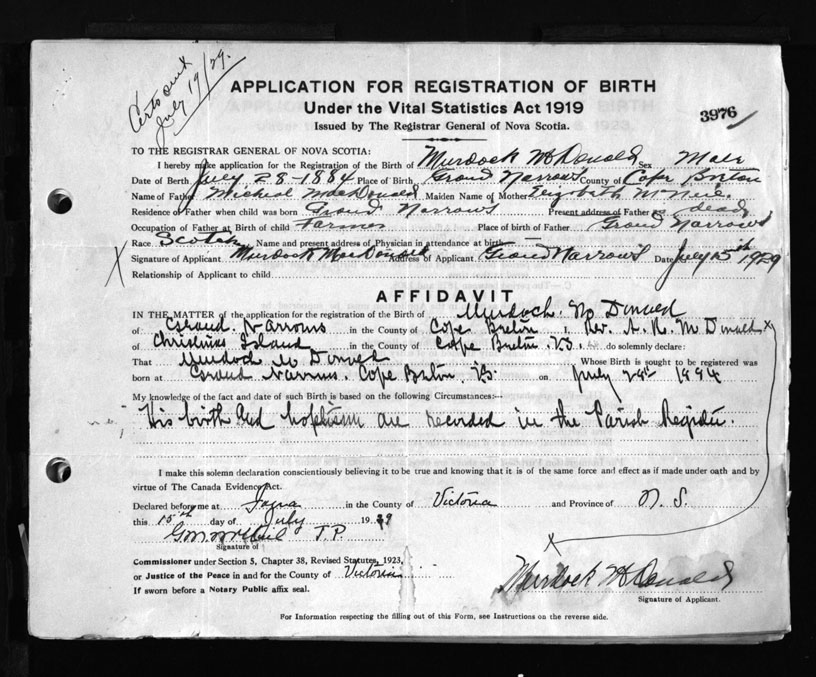 Certs out
July 19/29.
APPLICATION FOR REGISTRATION OF BIRTH
Under the Vital Statistics Act 1919
Issued by The Registrar General of Nova Scotia.
3976
TO THE REGISTRAR GENERAL OF NOVA SCOTIA:
I hereby make application for the Registration of the Birth of Murdock McDonald Sex Male
Date of Birth July 28-1884 Place of Birth Grand Narrows County of Cape Breton
Name of Father Micheal MacDonald Maiden Name of Mother Elizabeth McNeil
Residence of Father when child was born Grand Narrows Present address of Father dead
Occupation of Father at Birth of child Farmer Place of birth of Father Grand Narrows
Race Scotch Name and present address of Physician in attendance at birth —
Signature of Applicant Murdock MacDonald Address of Applicant Grand Narrows Date July 15th 1929
X Relationship of Applicant to child
AFFIDAVIT
IN THE MATTER of the application for the registration of the Birth of Murdoch McDonald
of Grand Narrows in the County of Cape Breton I, Rev. A. R. McDonald x
of Christmas Island in the County of Cape Breton N.S. do solemnly declare:
That Murdoch McDonald Whose Birth is sought to be registered was
born at Grand Narrows. Cape Breton. N.S. on July 28th 1884
My knowledge of the fact and date of such Birth is based on the following Circumstances:—
His birth and baptism are recorded in the Parish Register.
I make this solemn declaration conscientiously believing it to be true and knowing that it is of the same force and effect as if made under oath and by
virtue of The Canada Evidence Act.
Declared before me at Iona in the County of Victoria and Province of N. S.
this 15th day of July 1929
J. P.
Signature of
X
Commissioner under Section 5, Chapter 38, Revised Statutes, 1923,
or Justice of the Peace in and for the County of Victoria
If sworn before a Notary Public affix seal.
Murdock McDonald
Signature of Applicant.
For Information respecting the filling out of this Form, see Instructions on the reverse side.